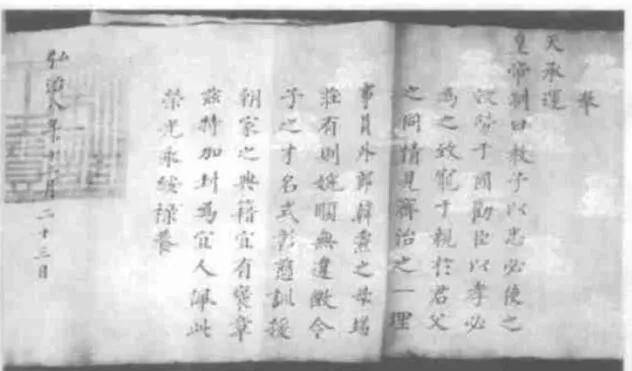 奉
天承運
皇帝制曰教子以忠必使之
效勞于國勸臣以孝必
為之致寵于親於君父
之同情見齊治之一理
事員外郎韓之母端
莊有則婉順無違徵令
子之才名式彰慈訓援
朝家之典籍宜有褒章
茲特加封為宜人佩此
榮光永綏祿養
弘治八年十月二十三日